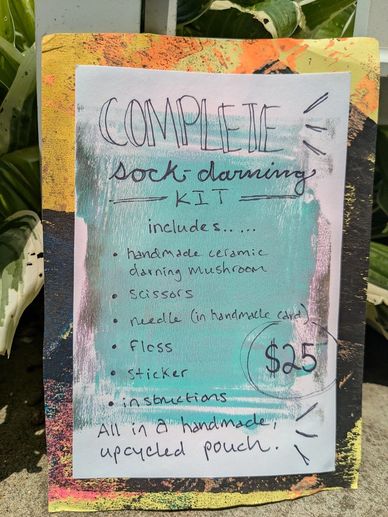 COMPLETE
sock darning
KIT
includes.....
• handmade ceramic
darning mushroom
• scissors
• needle (in handmade card)
• Floss
$25
• sticker
• instructions
All in a handmade,
upcycled pouch.